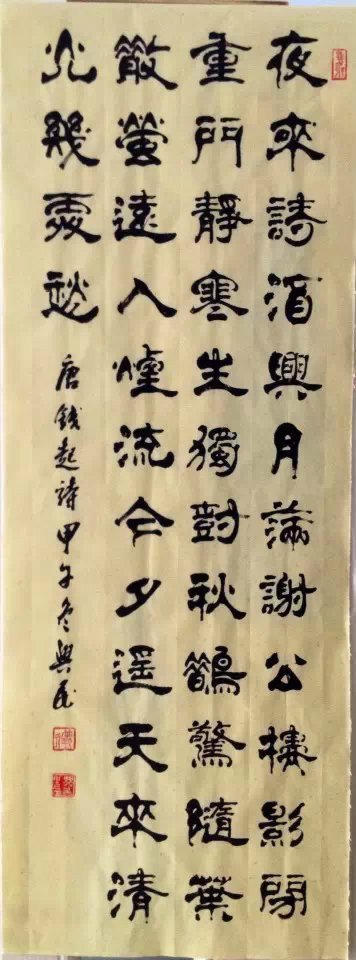 夜來詩酒興月滿謝公樓影閉
重門靜寒生獨對秋鵲驚隨葉
散螢遠入煙流今夕遥天來清
光幾處愁
唐錢起詩甲午冬興民